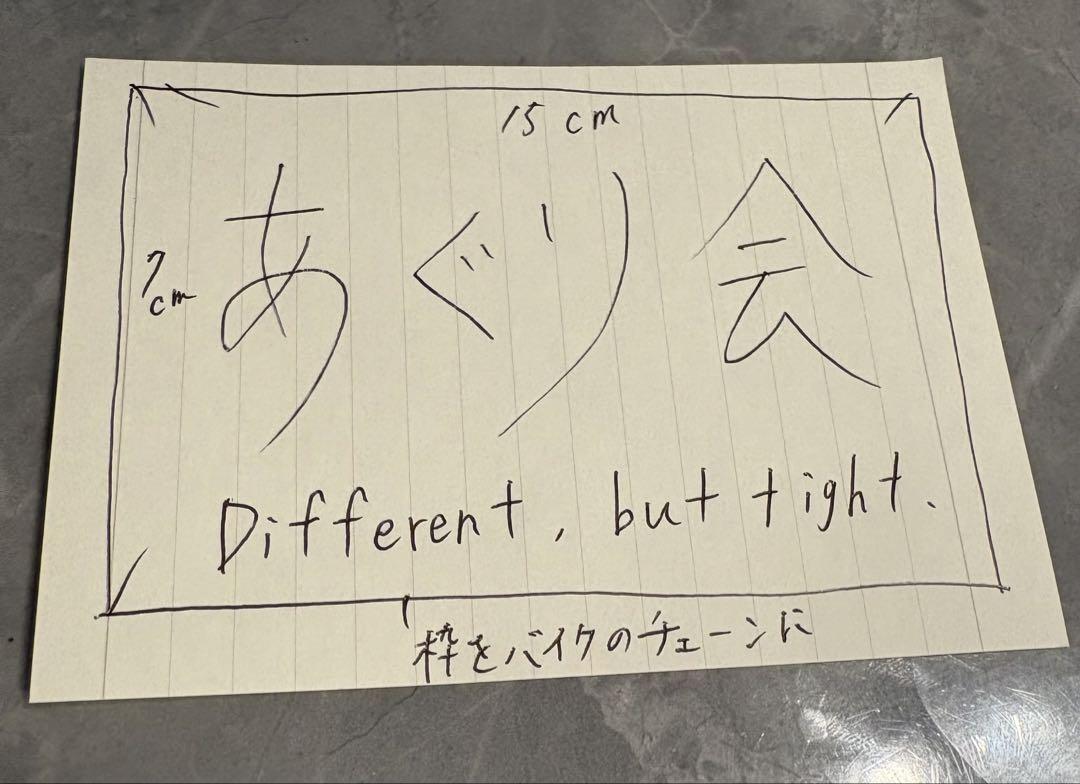 15 cm
7 cm
あぐり会
Different, but tight.
枠をバイクのチェーンに